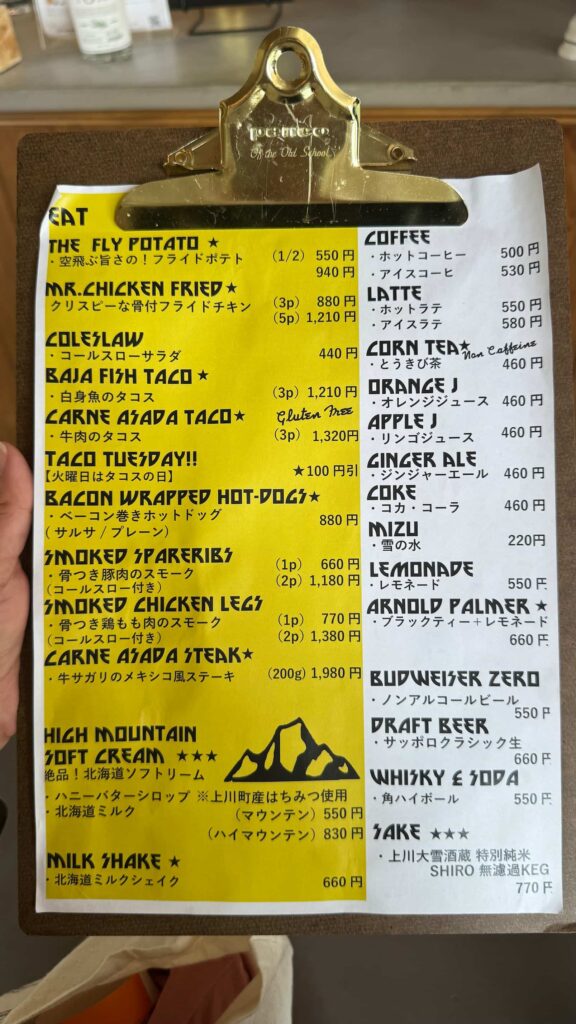 Of the Old School
EAT
THE FLY POTATO ★
・空飛ぶ旨さの！フライドポテト (1/2) 550円
940円
MR.CHICKEN FRIED★
クリスピーな骨付フライドチキン (3p) 880円
(5p) 1,210円
COLESLAW
・コールスローサラダ 440円
BAJA FISH TACO ★
・白身魚のタコス (3p) 1,210円
CARNE ASADA TACO★ Gluten Free
・牛肉のタコス (3p) 1,320円
TACO TUESDAY!!
【火曜日はタコスの日】 ★100円引
BACON WRAPPED HOT-DOGS★
・ベーコン巻きホットドッグ
(サルサ / プレーン) 880円
SMOKED SPARERIBS
・骨つき豚肉のスモーク (1p) 660円
(コールスロー付き) (2p) 1,180円
SMOKED CHICKEN LEGS
・骨つき鶏もも肉のスモーク (1p) 770円
(コールスロー付き) (2p) 1,380円
CARNE ASADA STEAK★
・牛サガリのメキシコ風ステーキ (200g) 1,980円
HIGH MOUNTAIN
SOFT CREAM ★★★
絶品！北海道ソフトリーム
・ハニーバターシロップ ※上川町産はちみつ使用
・北海道ミルク (マウンテン) 550円
(ハイマウンテン) 830円
MILK SHAKE ★
・北海道ミルクシェイク 660円
COFFEE
・ホットコーヒー 500円
・アイスコーヒ 530円
LATTE
・ホットラテ 550円
・アイスラテ 580円
CORN TEA★ Non Caffeine
・とうきび茶 460円
ORANGE J
・オレンジジュース 460円
APPLE J
・リンゴジュース 460円
GINGER ALE
・ジンジャーエール 460円
COKE
・コカ・コーラ 460円
MIZU
・雪の水 220円
LEMONADE
・レモネード 550円
ARNOLD PALMER ★
・ブラックティー＋レモネード
660円
BUDWEISER ZERO
・ノンアルコールビール
550円
DRAFT BEER
・サッポロクラシック生
660円
WHISKY & SODA
・角ハイボール 550円
SAKE ★★★
・上川大雪酒蔵 特別純米
SHIRO 無濾過KEG
770円